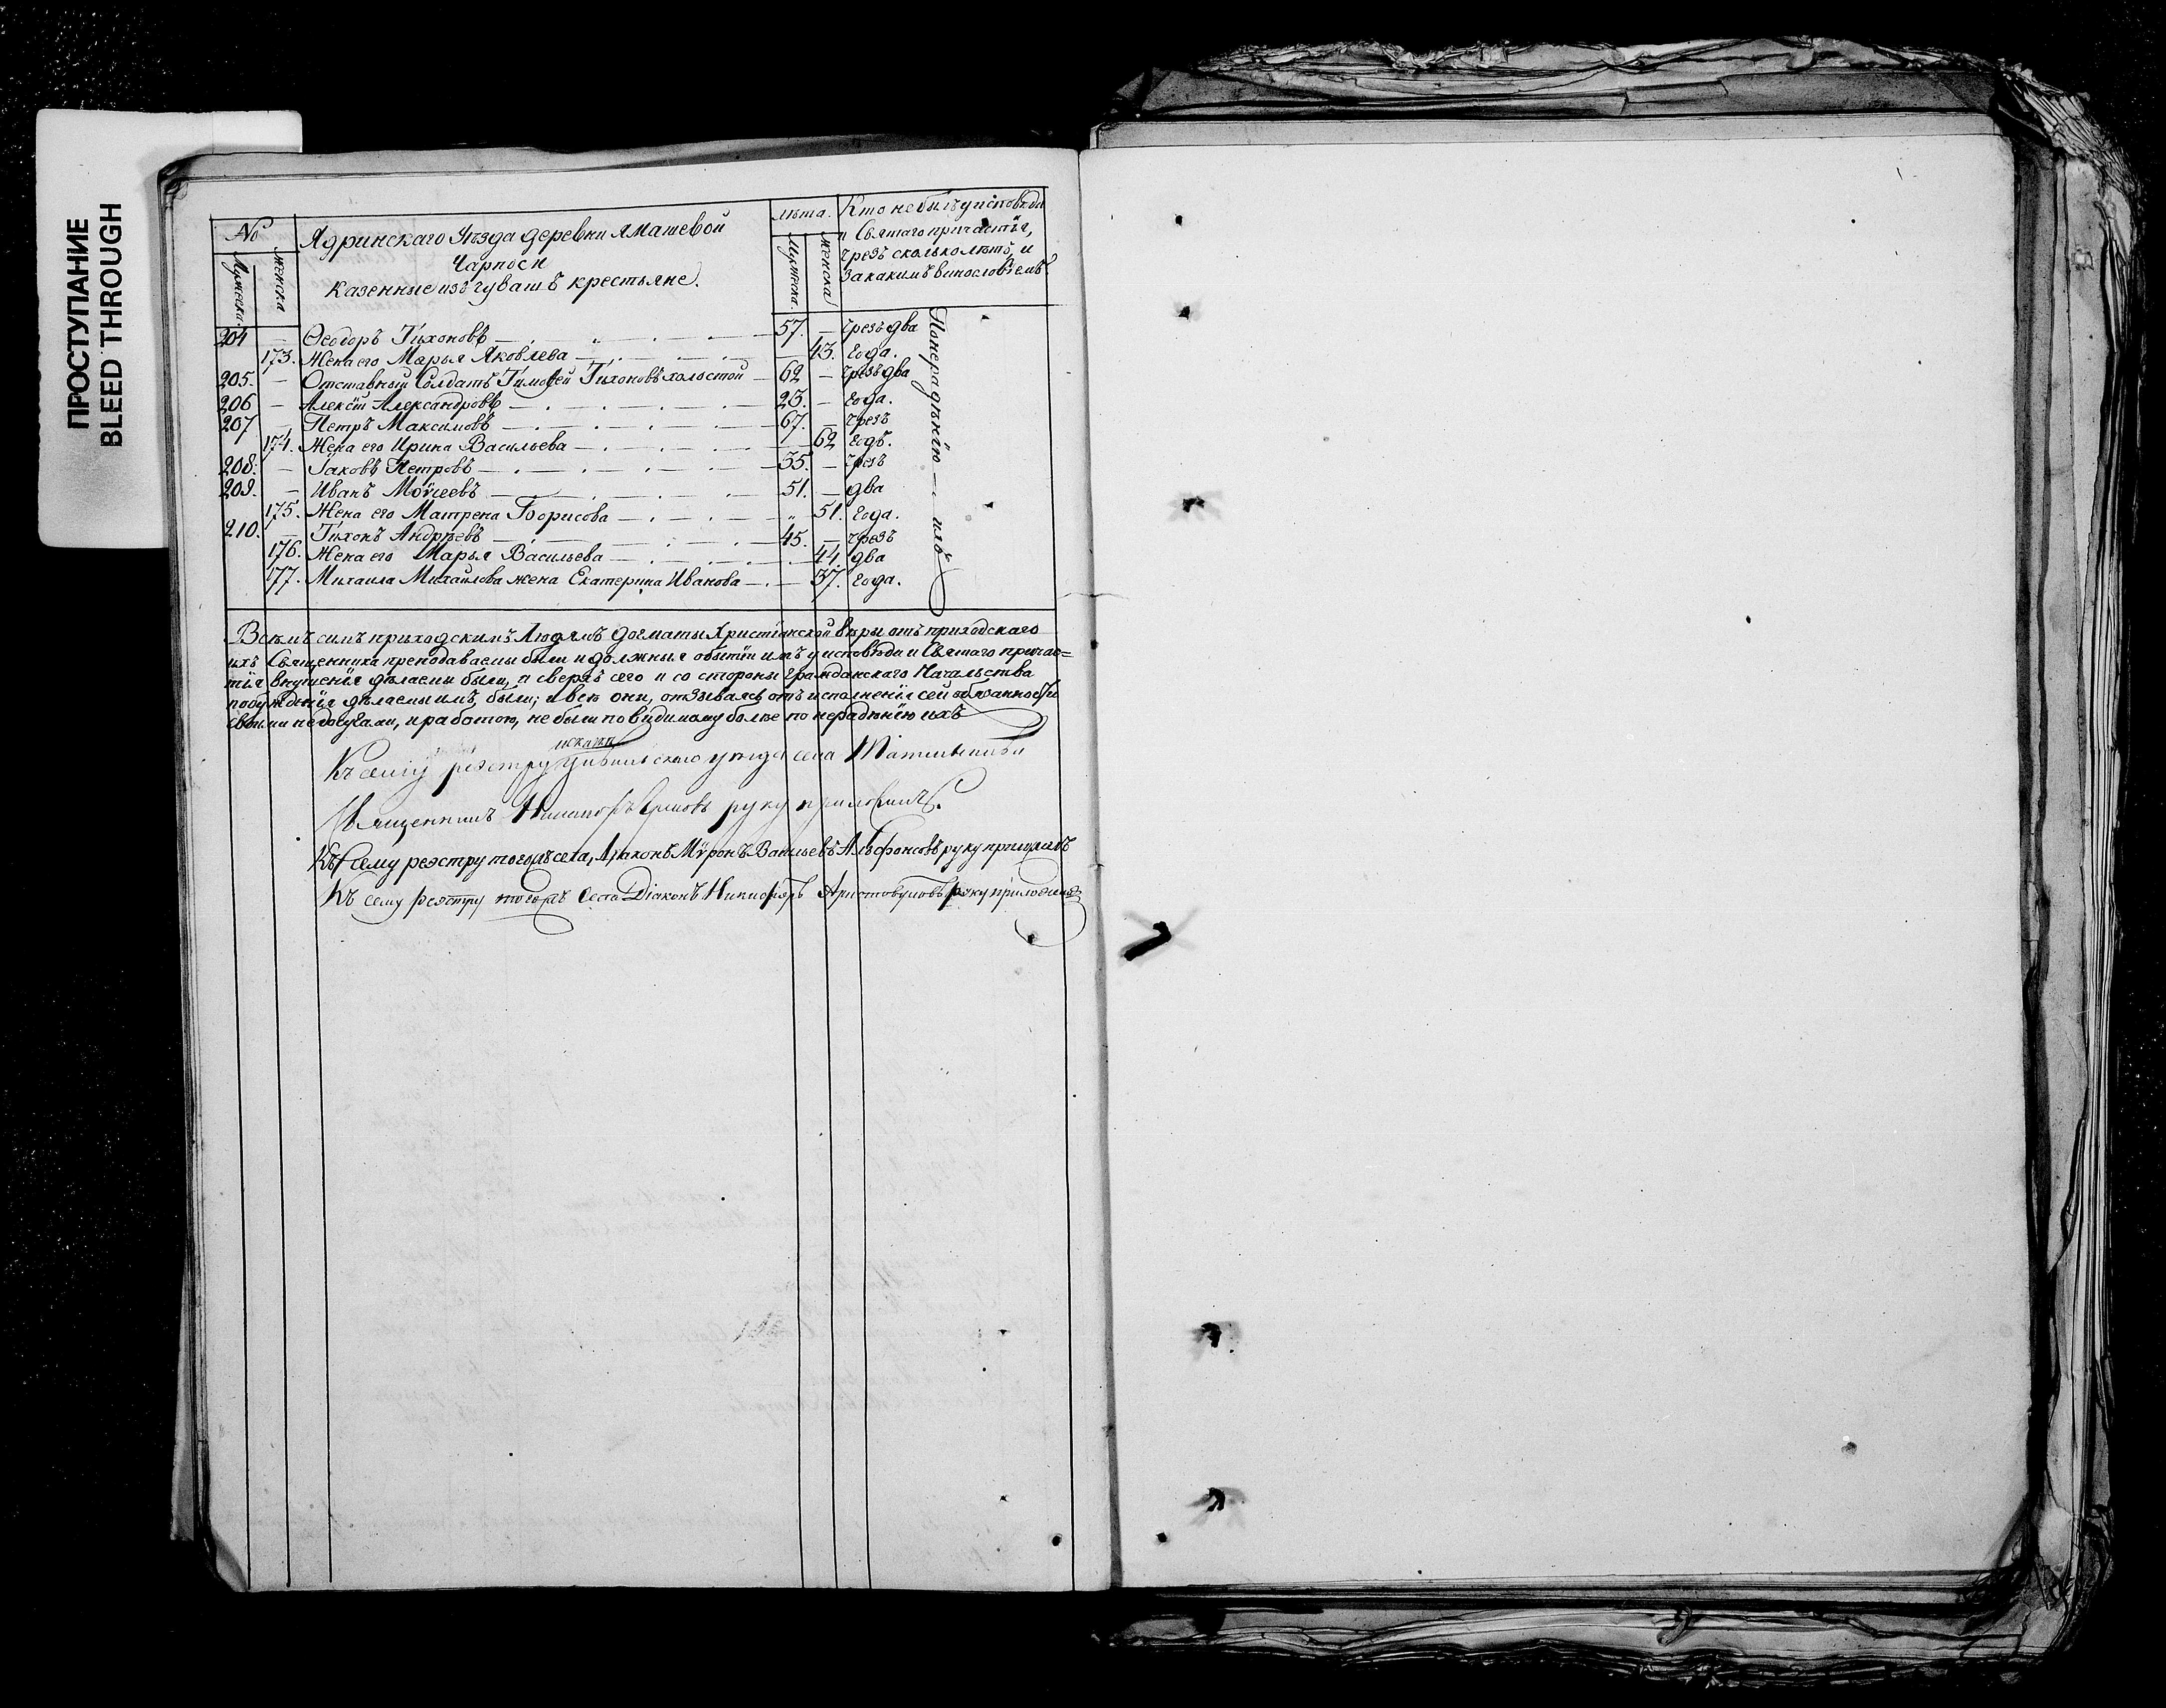 ПРОСТУПАНИЕ
BLEED THROUGH
№ Ядринскаго Уѣзда деревни Яматевой лѣта. Кто не былъ у исповѣди
Чарпоси и Святаго причастїя,
Казенные изъ чувашъ крестьяне. чрезъ сколько лѣтъ, и
Мужеска. женска Мужеска. женска за какимъ винословїемъ
204 — Ѳеодоръ Тихоновъ 57. — чрезъ два
173. Жена его Марья Яковлева — 43. года.
205. — Отставный Солдатъ Тимоѳей Тихоновъ холостой 62 — чрезъ два
206 — Алексѣй Александровъ 23. — года.
207 — Петръ Максимовъ 67. — чрезъ
174. Жена его Ирина Васильева — 62 годъ.
208. — Іаковъ Петровъ 35. — чрезъ
209. — Иванъ Моѵсеевъ 51. — два
175. Жена его Матрена Борисова „ 51. года.
210. — Тихонъ Андрѣевъ 45. — чрезъ
176. Жена его Марья Васильева 44. два
177. Михаила Михайлова жена Екатерина Иванова — 37. года.
По нерадѣнїю — ихъ
Всѣмъ симъ приходскимъ Людямъ догматы Христїанской вѣры отъ приходскаго
ихъ Священника преподаваемы были и должныя о бытїи имъ у исповѣди и Святаго причас=
тїя внушенїя дѣлаемы были, и сверхъ сего и со стороны гражданскаго Начальства
побужденїя дѣлаемы имъ были; и всѣ они, отзываясь отъ исполненїя сей обязанности
своими недосугами, и работою, не были по видимому болѣе по нерадѣнїю ихъ
Къ сему реэстру Цивильскаго уѣзда села
Священникъ руку приложилъ.
Къ сему реэстру тогожъ села, Дїаконъ Мѵронъ Васильевъ руку приложилъ
Къ сему реэстру тогожъ села Дїаконъ Никифоръ Аристовуловъ руку приложилъ